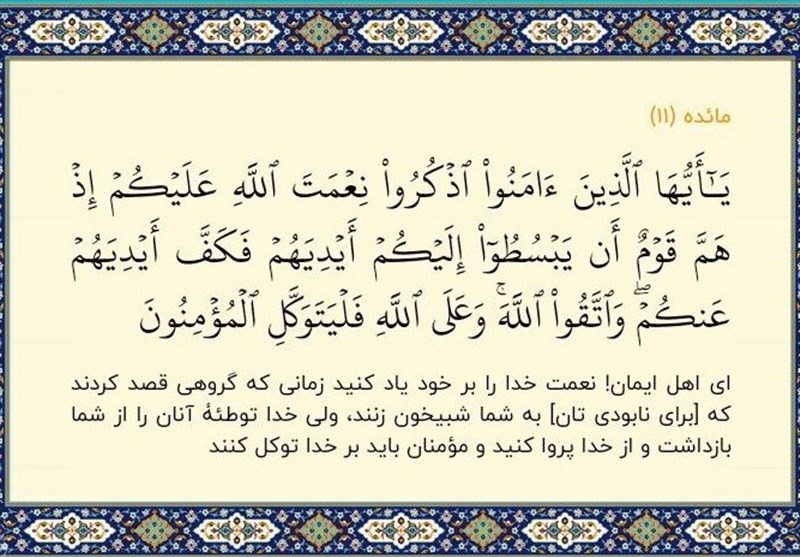 مائده (۱۱)
يَـٰٓأَيُّهَا ٱلَّذِينَ ءَامَنُوا۟ ٱذۡكُرُوا۟ نِعۡمَتَ ٱللَّهِ عَلَيۡكُمۡ إِذۡ
هَمَّ قَوۡمٌ أَن يَبۡسُطُوٓا۟ إِلَيۡكُمۡ أَيۡدِيَهُمۡ فَكَفَّ أَيۡدِيَهُمۡ
عَنكُمۡۖ وَٱتَّقُوا۟ ٱللَّهَۚ وَعَلَى ٱللَّهِ فَلۡيَتَوَكَّلِ ٱلۡمُؤۡمِنُونَ
ای اهل ایمان! نعمت خدا را بر خود یاد کنید زمانی که گروهی قصد کردند
که [برای نابودی تان] به شما شبیخون زنند، ولی خدا توطئهٔ آنان را از شما
بازداشت و از خدا پروا کنید و مؤمنان باید بر خدا توکل کنند